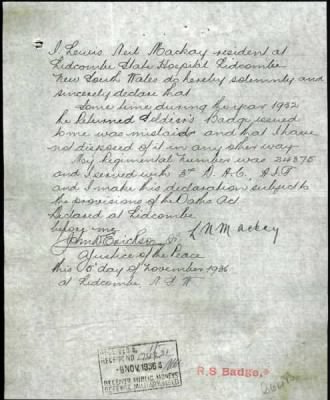 I Lewis Neil Mackay resident at
Lidcombe State Hospital Lidcombe
New South Wales do hereby solemnly and
sincerely declare that
Some time during the year 1932
the Returned Soldier's Badge issued
to me was mislaid and that I have
not disposed of it in any other way
My Regimental number was 24375
and I served with 3rd D.A.C. A.I.F
and I make this declaration subject to
the provisions of the Oaths Act
Declared at Lidcombe
before me
L N Mackay
John Erickson J.P.
A Justice of the Peace
this day of November 1936
at Lidcombe
9 NOV 1936
RECEIVER PUBLIC MONEYS
R.S Badge.